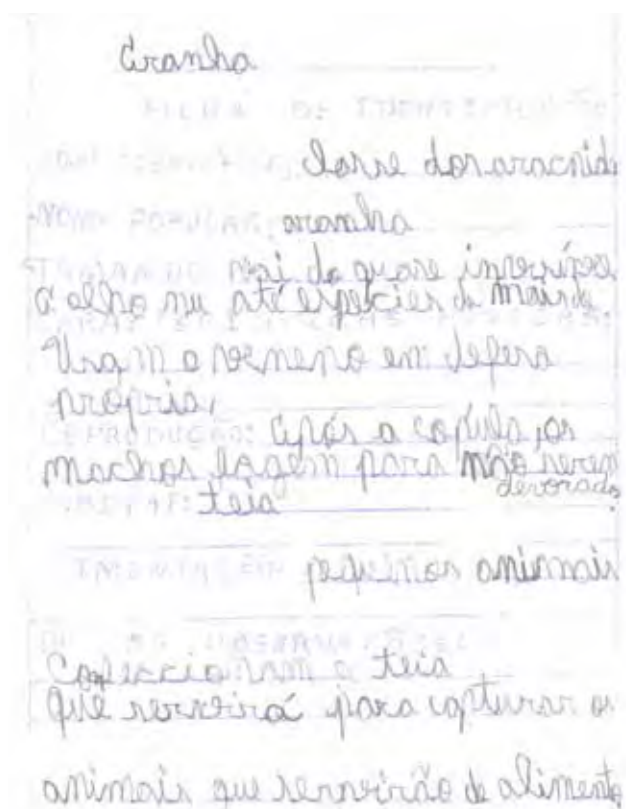 Aranha
FICHA DE IDENTIFICAÇÃO
NOME CIENTÍFICO: Classe dos aracníd
NOME POPULAR: aranha
TAMANHO: vai de quase invisível
a olho nu até espécies de mais de
CARACTERÍSTICAS
Usam o veneno em defesa
própria.
REPRODUÇÃO: após a copula, os
machos fogem para não serem
devorados
HABITAT: teia
ALIMENTAÇÃO pequenos animais
OBSERVAÇÕES:
Confeccionam a teia
que serveirá para capturar os
animais que serveirão de alimento